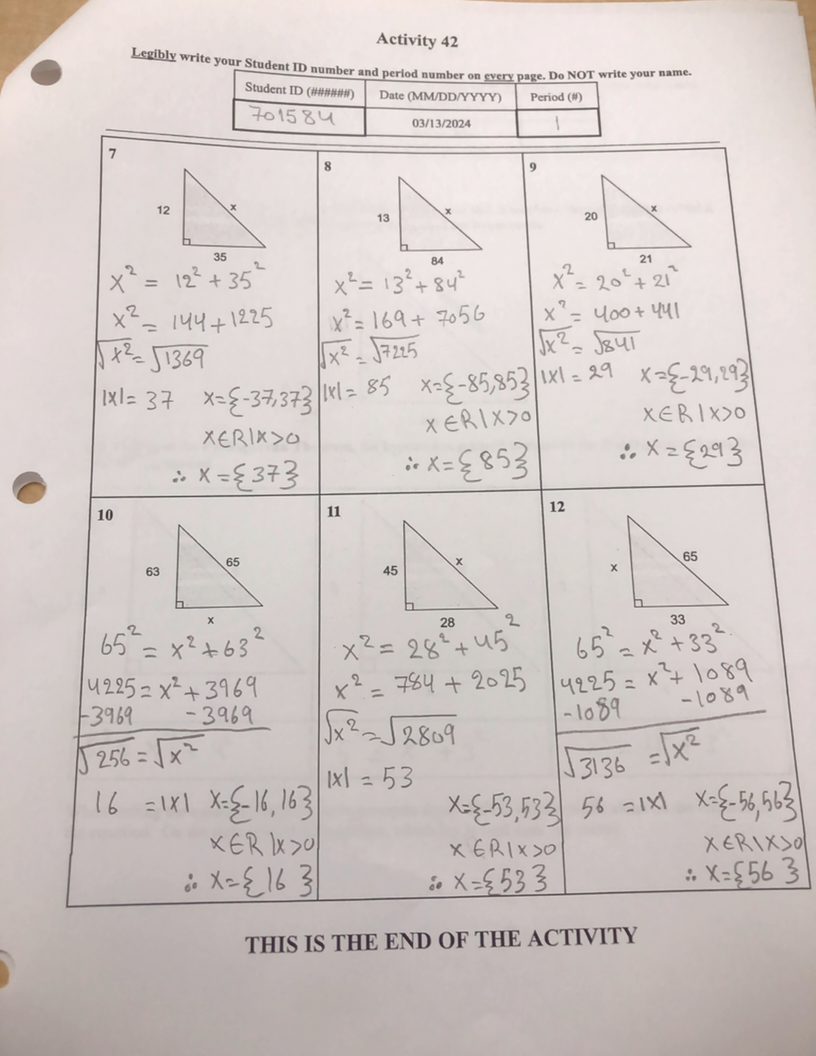 Activity 42
Legibly write your Student ID number and period number on every page. Do NOT write your name.
Student ID (######) Date (MM/DD/YYYY) Period (#)
701584 03/13/2024 1
7
12
x
35
x² = 12² + 35²
x² = 144 + 1225
√x² = √1369
|x| = 37 x={-37,37}
x∈R|x>0
∴ x={37}
8
13
x
84
x² = 13² + 84²
x² = 169 + 7056
√x² = √7225
|x| = 85 x={-85,85}
x∈R|x>0
∴ x={85}
9
20
x
21
x² = 20² + 21²
x² = 400 + 441
√x² = √841
|x| = 29 x={-29,29}
x∈R|x>0
∴ x={29}
10
63
65
x
65² = x² + 63²
4225 = x² + 3969
-3969 -3969
√256 = √x²
16 = |x| x={-16,16}
x∈R|x>0
∴ x={16}
11
45
x
28
x² = 28² + 45²
x² = 784 + 2025
√x² = √2809
|x| = 53
x={-53,53}
x∈R|x>0
∴ x={53}
12
x
65
33
65² = x² + 33²
4225 = x² + 1089
-1089 -1089
√3136 = √x²
56 = |x| x={-56,56}
x∈R|x>0
∴ x={56}
THIS IS THE END OF THE ACTIVITY